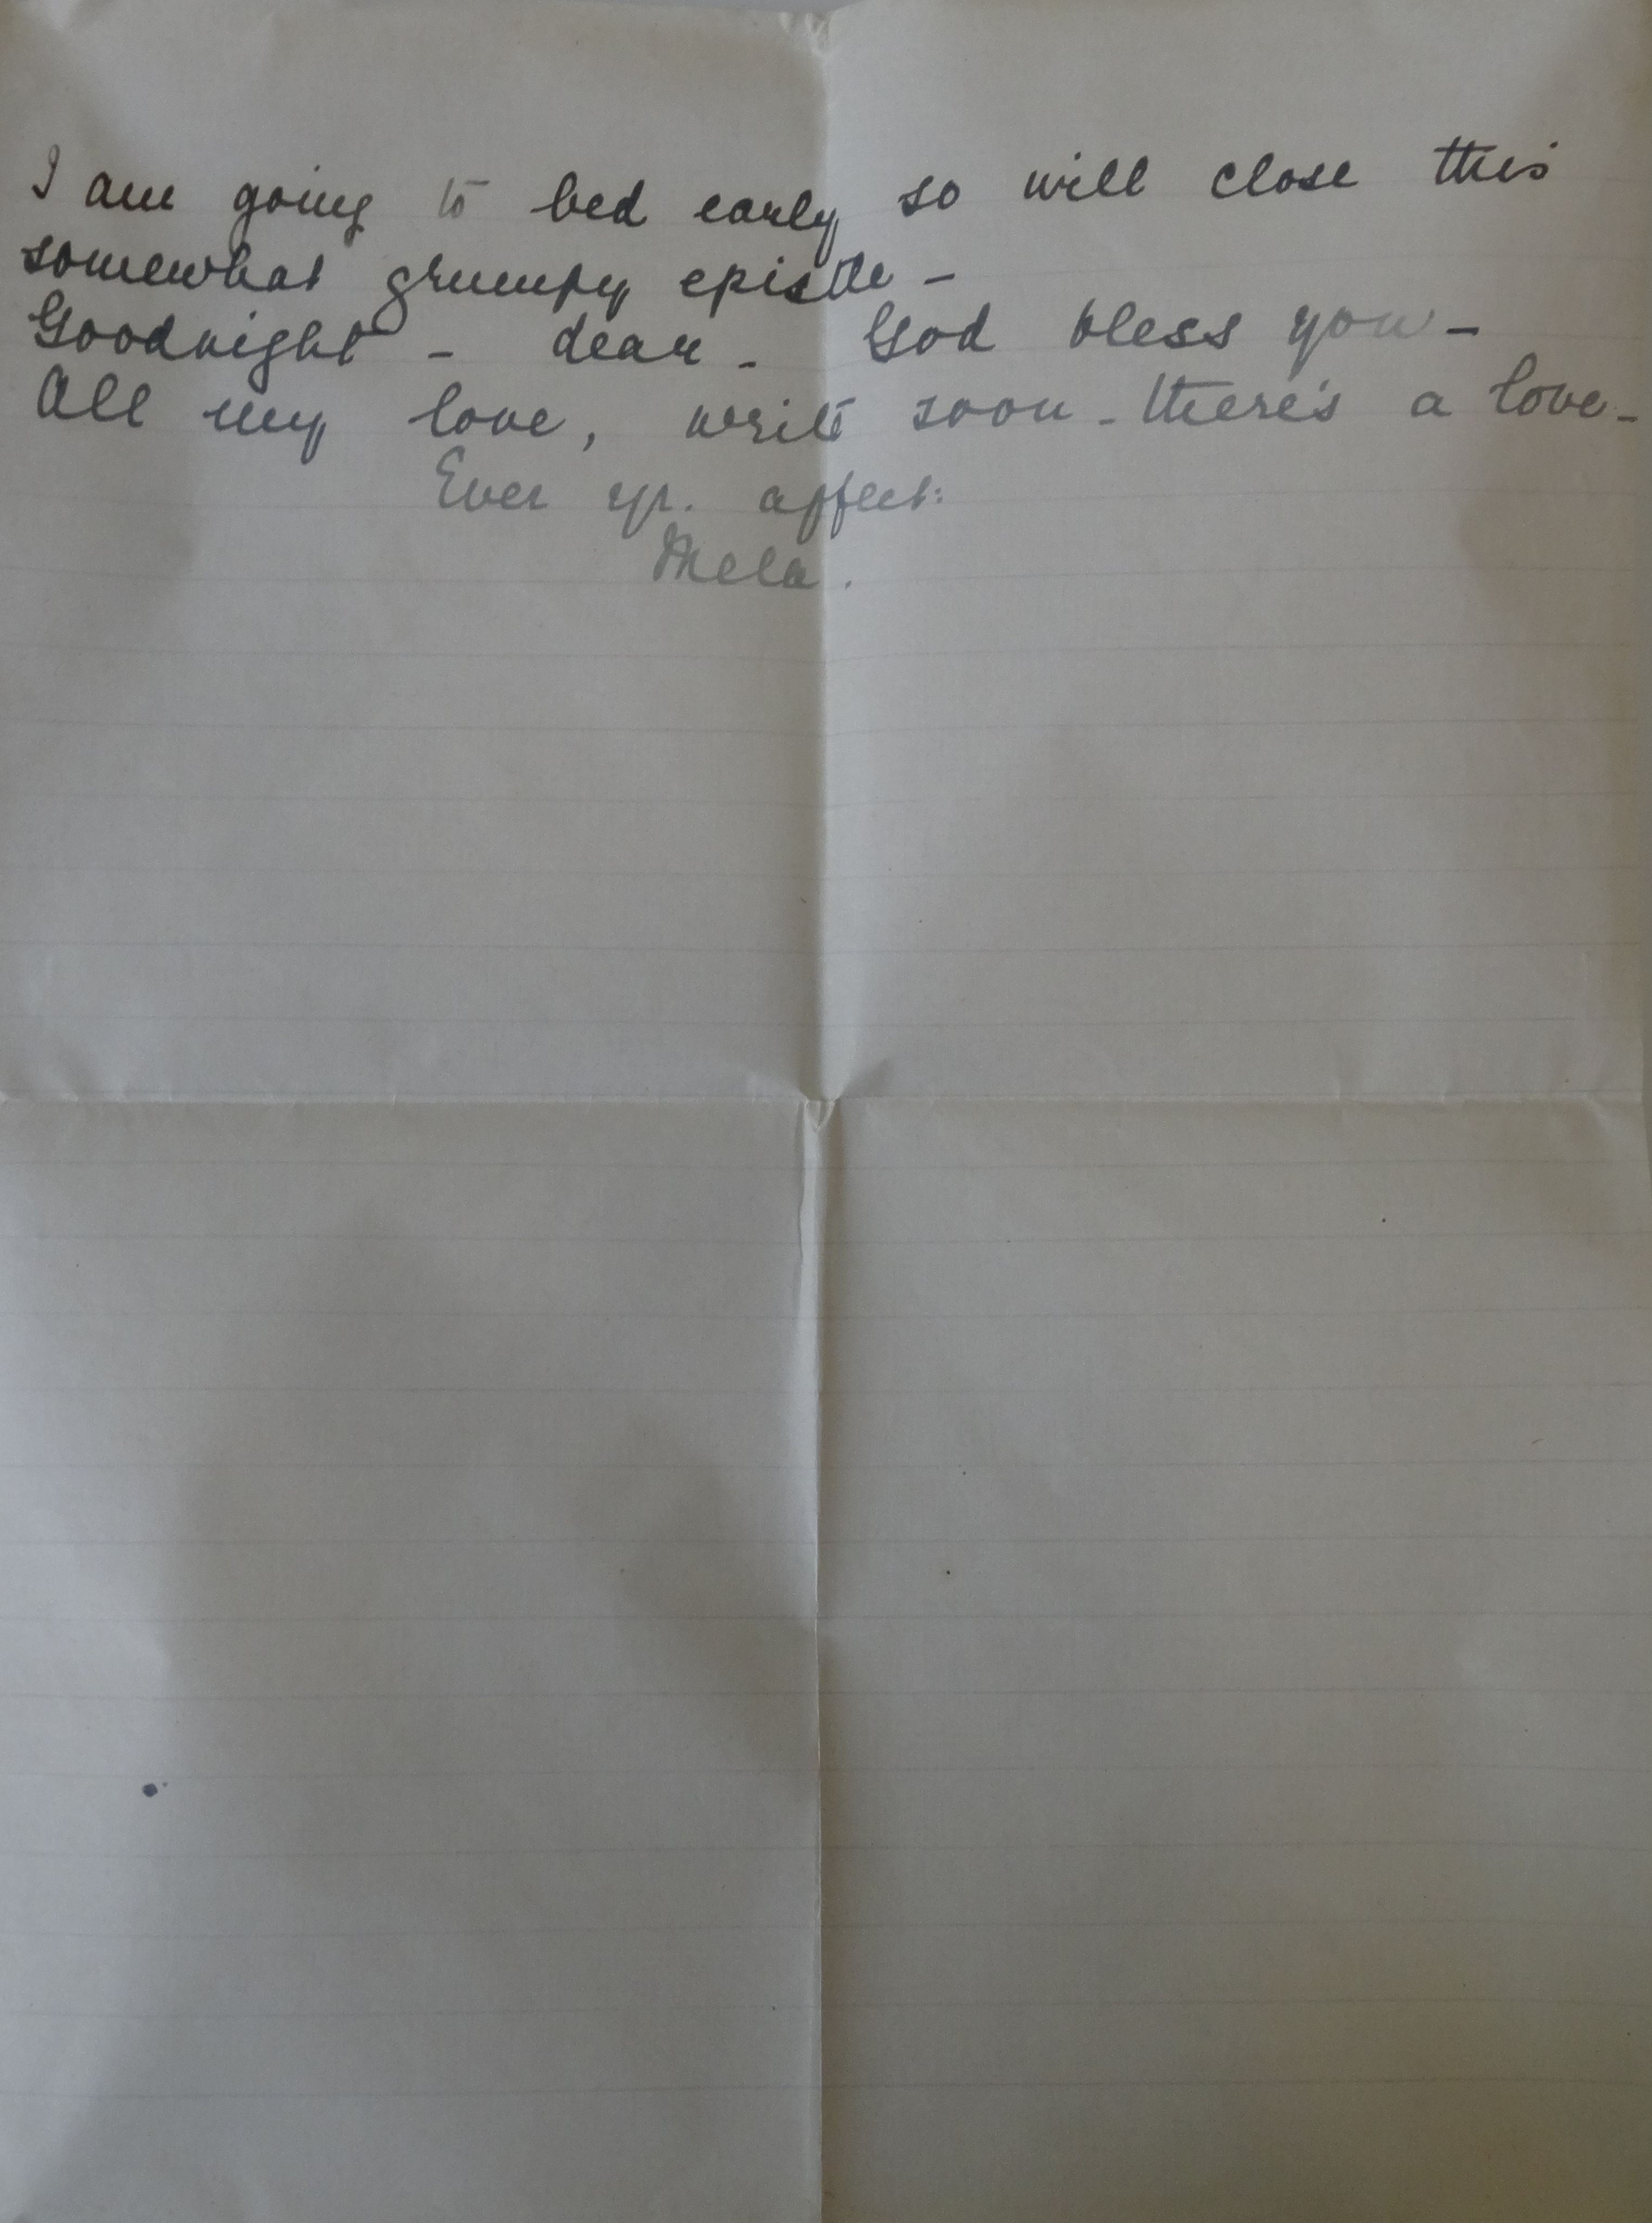 I am going to bed early so will close this
somewhat grumpy epistle -
Goodnight - dear - God bless you -
All my love, write soon - there's a love -
Ever yr. affect:
Mela.